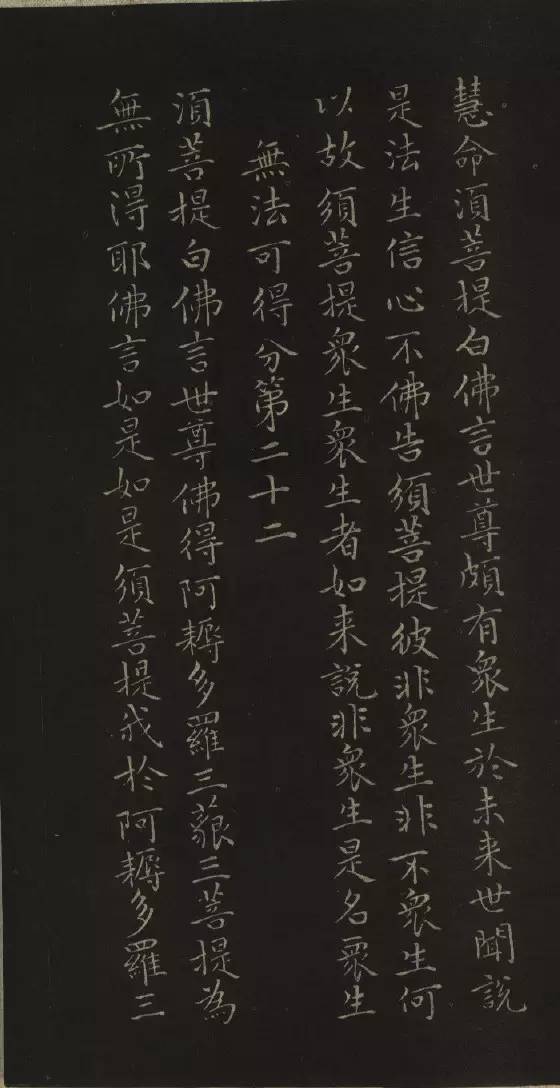 慧命須菩提白佛言世尊頗有衆生於未来世聞說
是法生信心不佛告須菩提彼非衆生非不衆生何
以故須菩提衆生衆生者如来說非衆生是名衆生
無法可得分第二十二
須菩提白佛言世尊佛得阿耨多羅三藐三菩提為
無所得耶佛言如是如是須菩提我於阿耨多羅三